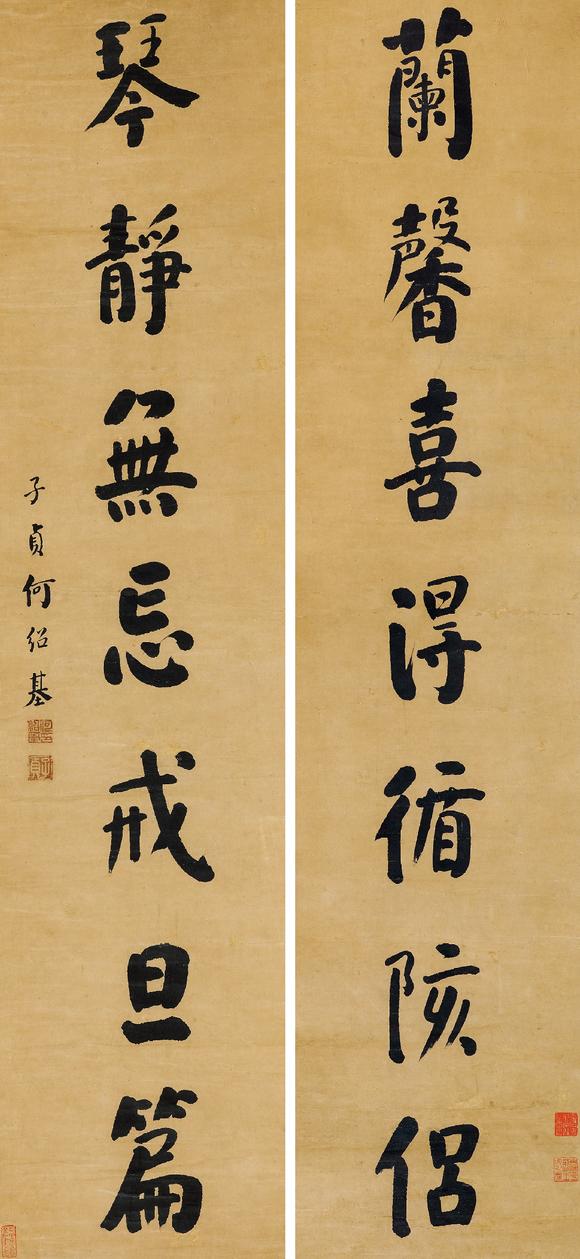 蘭馨喜得循陔侣
琴靜無忘戒旦篇
子貞何绍基